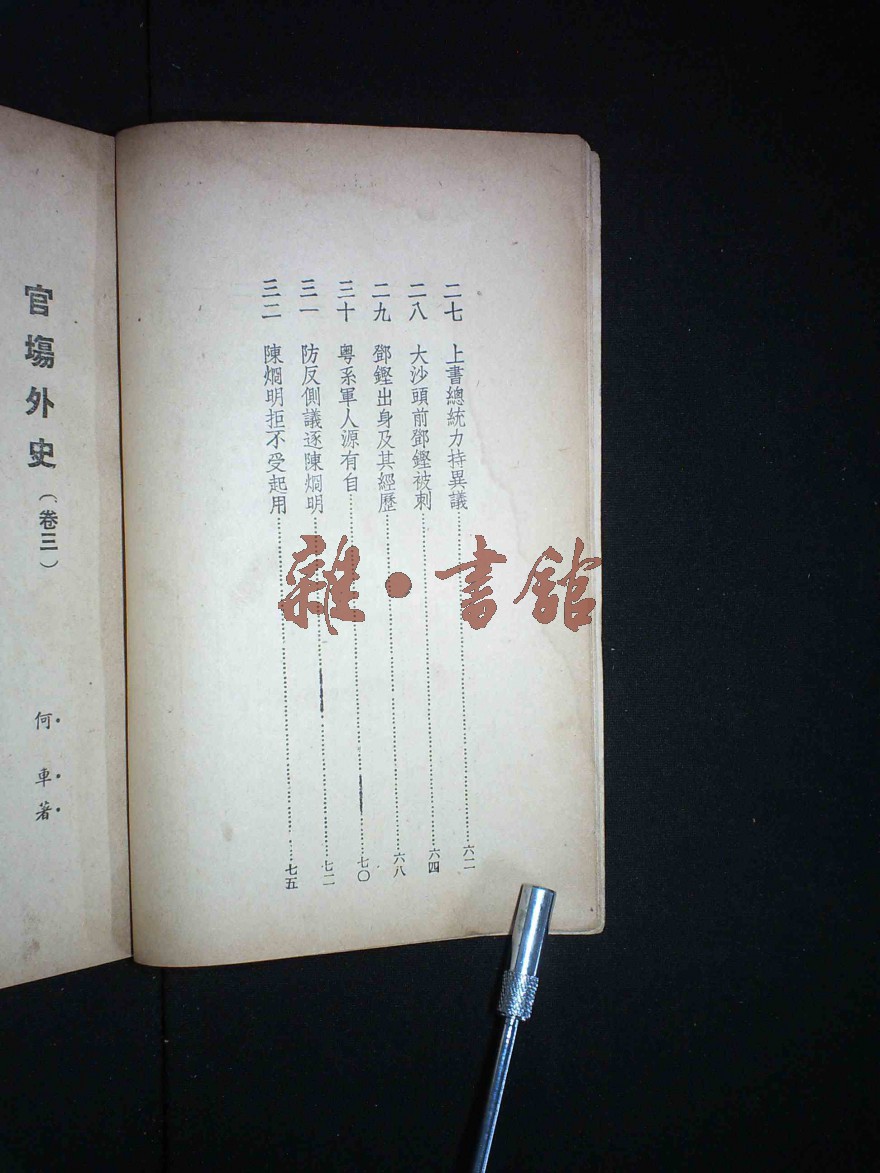 二七　上書總統力持異議……六二
二八　大沙頭前鄧鏗被刺……六四
二九　鄧鏗出身及其經歷……六八
三十　粵系軍人源有自……七〇
三一　防反側議逐陳烱明……七二
三二　陳烱明拒不受起用……七五
官塲外史（卷三）
何車著
雜·書館